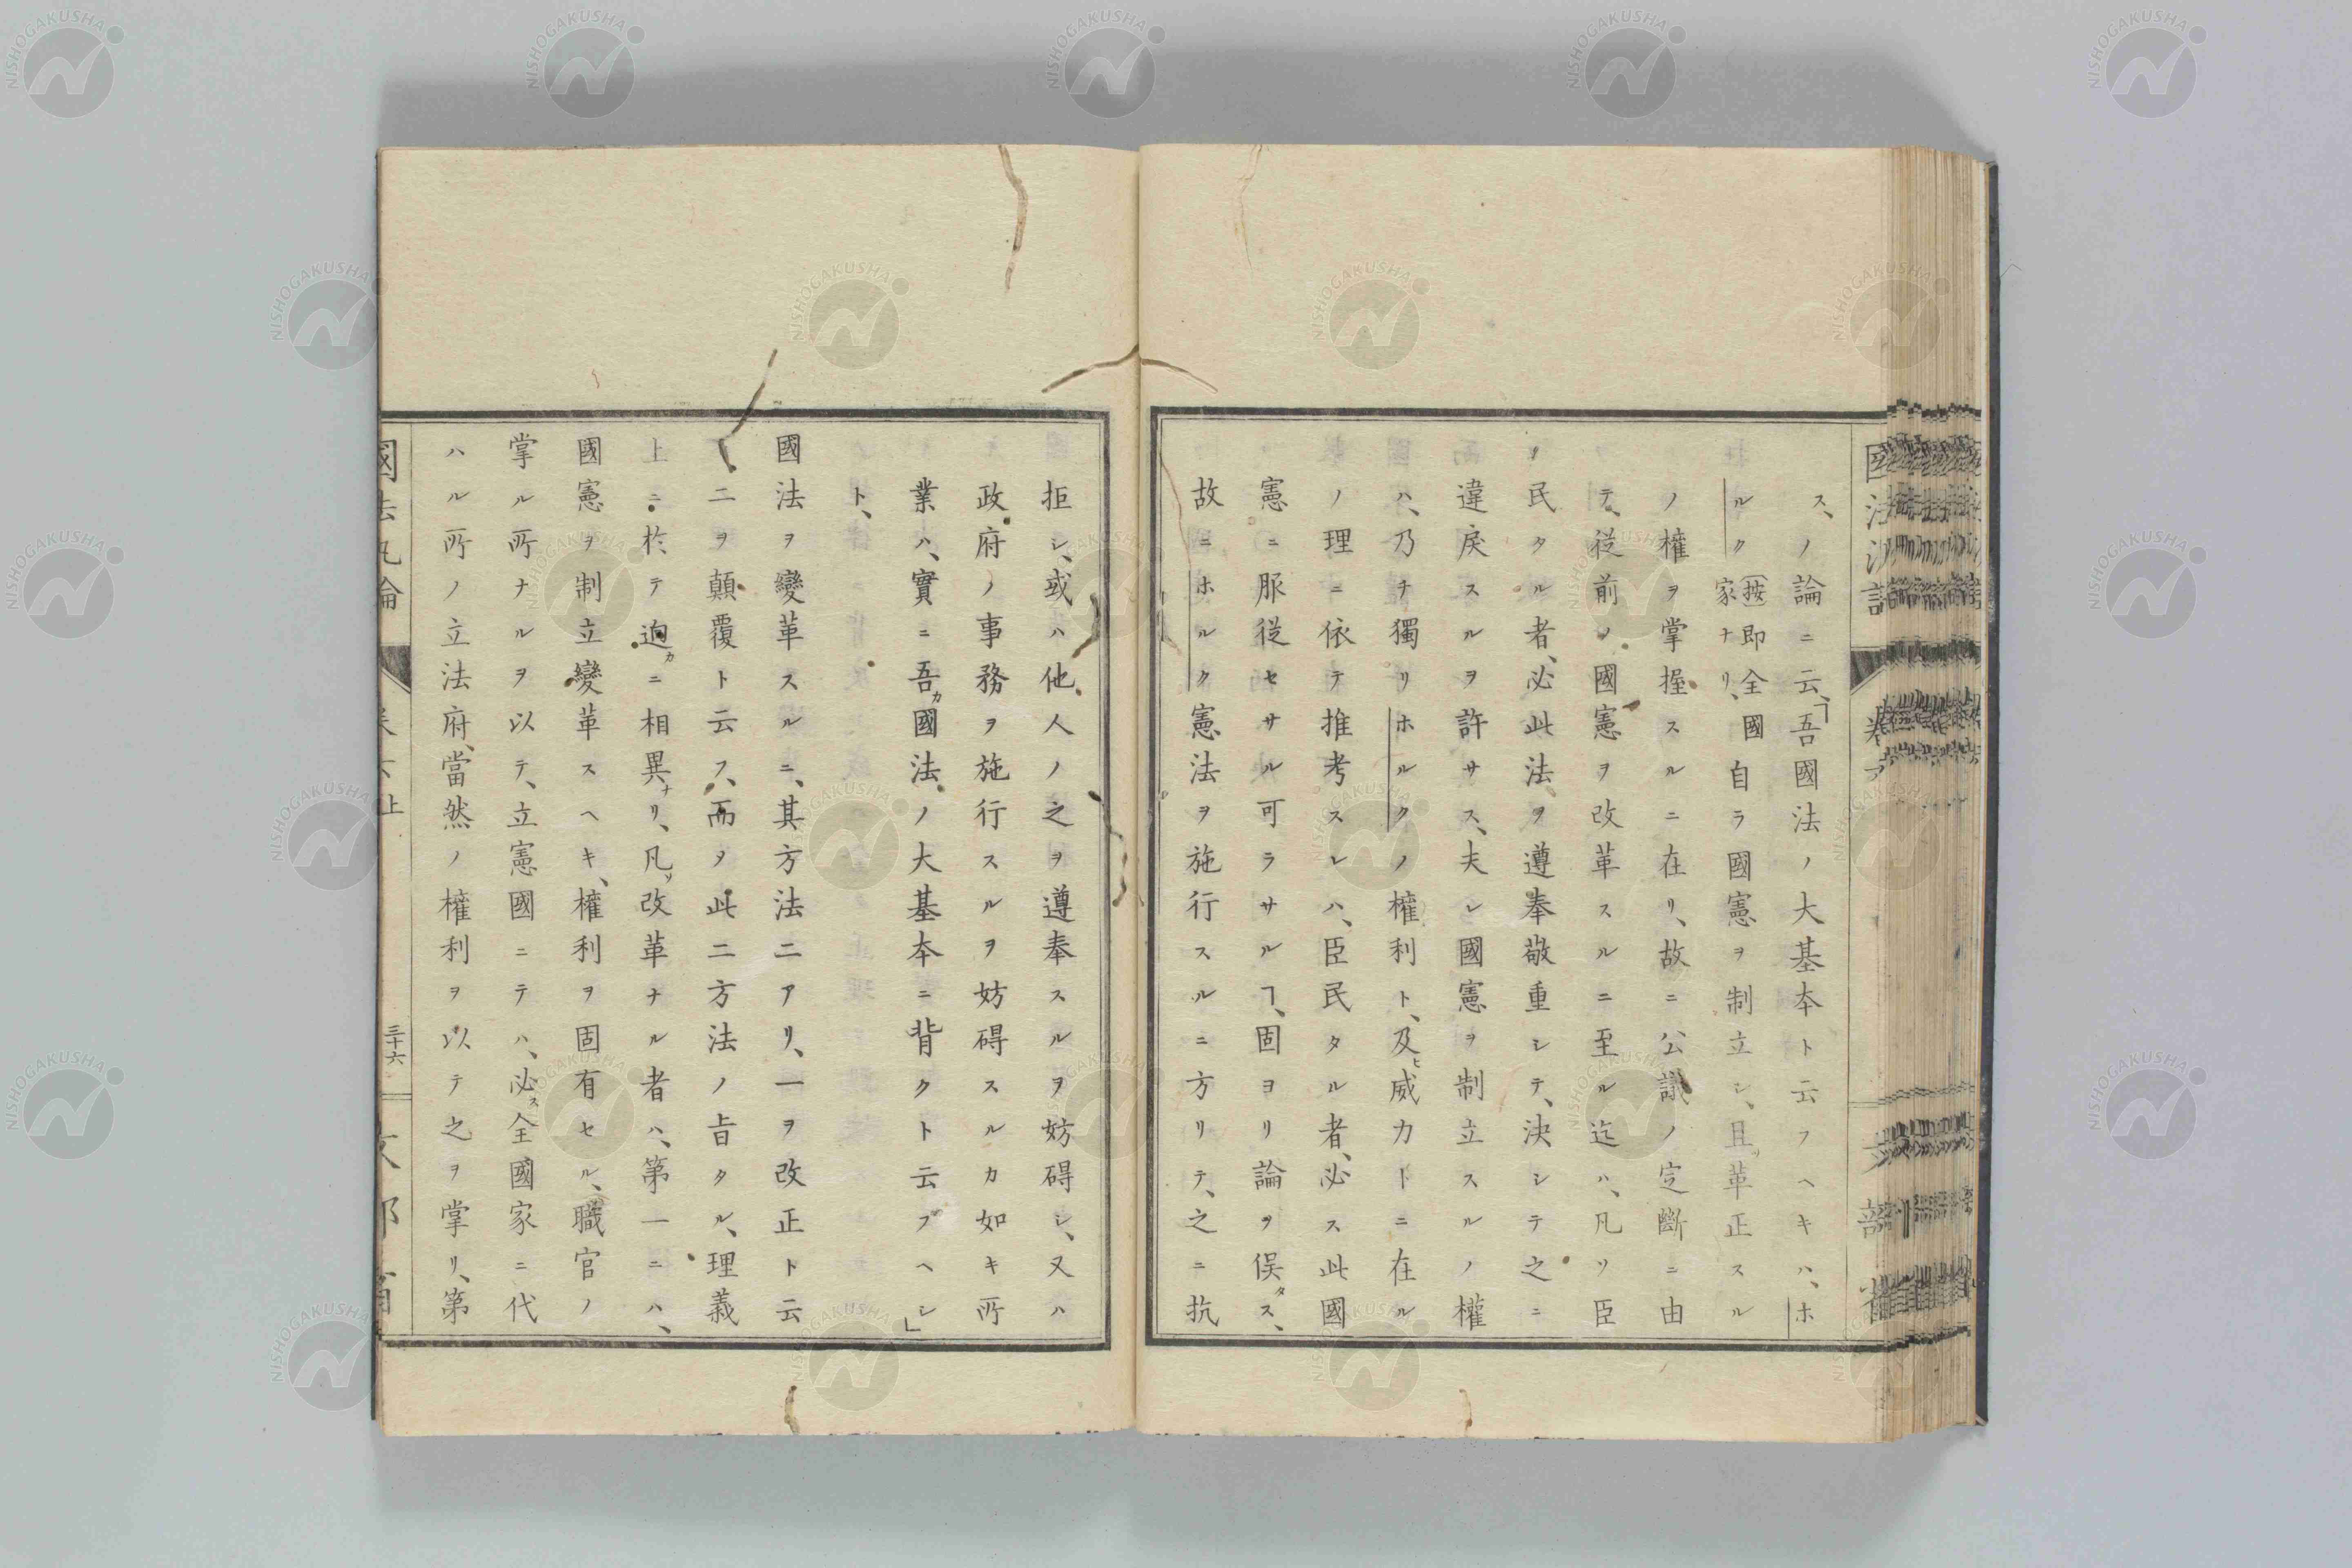 ス、ノ論ニ云、「吾國法ノ大基本ト云フヘキハ、ホ
ルク（按即全國家ナリ、自ラ國憲ヲ制立シ、且革正スル
ノ權ヲ掌握スルニ在リ、故ニ公議ノ定斷ニ由
テ、從前ノ國憲ヲ改革スルニ至ル迄ハ、凡ソ臣
民タル者、必此法ヲ遵奉敬重シテ、決シテ之ニ
違戻スルヲ許サス、夫レ國憲ヲ制立スルノ權
ハ、乃チ獨リホルクノ權利ト、及ヒ威力トニ在ル
ノ理ニ依テ推考スレハ、臣民タル者、必ス此國
憲ニ服從セサル可ラサルヿ、固ヨリ論ヲ俟タス、
故ニホルク憲法ヲ施行スルニ方リテ、之ニ抗
拒シ、或ハ他人ノ之ヲ遵奉スルヲ妨碍シ、又ハ
政府ノ事務ヲ施行スルヲ妨碍スルカ如キ所
業ハ、實ニ吾カ國法ノ大基本ニ背クト云フヘシ」
ト、
國法ヲ變革スルニ、其方法二アリ、一ヲ改正ト云
ヒ、二ヲ顛覆ト云フ、而ヲ此二方法ノ旨タル、理義
上ニ於テ迥カニ相異ナリ、凡ソ改革ナル者ハ、第一ニハ、
國憲ヲ制立變革スヘキ、權利ヲ固有セル、職官ノ
掌ル所ナルヲ以テ、立憲國ニテハ、必ス全國家ニ代
ハル所ノ立法府、當然ノ權利ヲ以テ之ヲ掌リ、第
國法汎論
卷六上
三十六
文部省